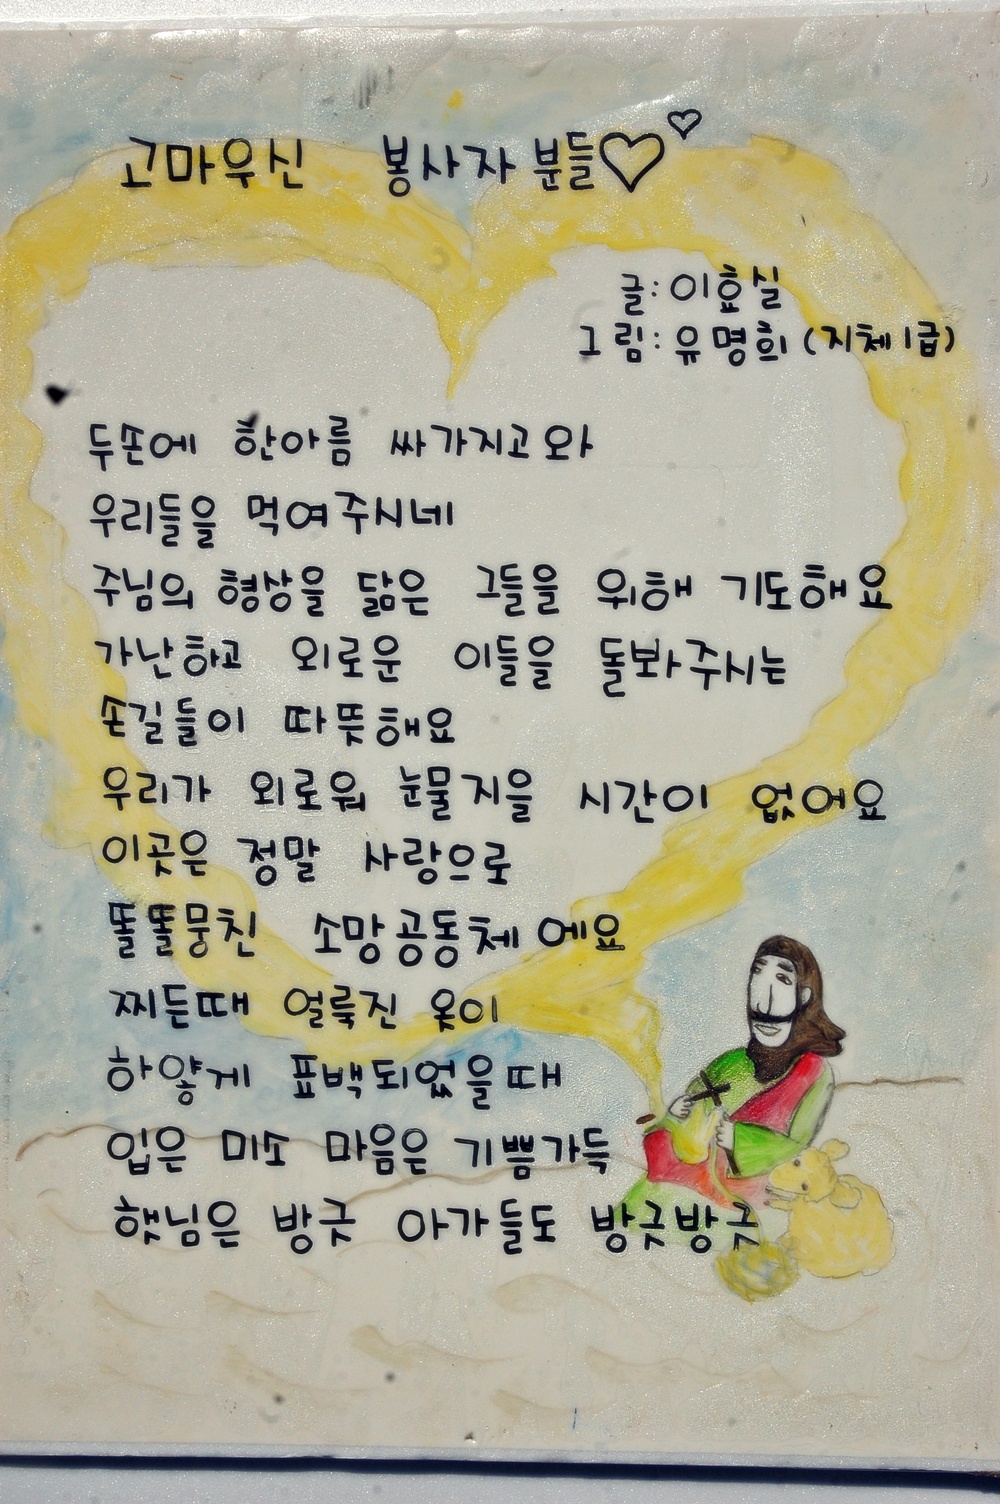 고마우신 봉사자 분들♡♡
글: 이효실
그림: 유명희 (지체1급)
두손에 한아름 싸가지고 와
우리들을 먹여주시네
주님의 형상을 닮은 그들을 위해 기도해요
가난하고 외로운 이들을 돌봐주시는
손길들이 따뜻해요
우리가 외로워 눈물지을 시간이 없어요
이곳은 정말 사랑으로
똘똘뭉친 소망공동체 에요
찌든때 얼룩진 옷이
하얗게 표백되었을때
입은 미소 마음은 기쁨가득
햇님은 방긋 아가들도 방긋방긋